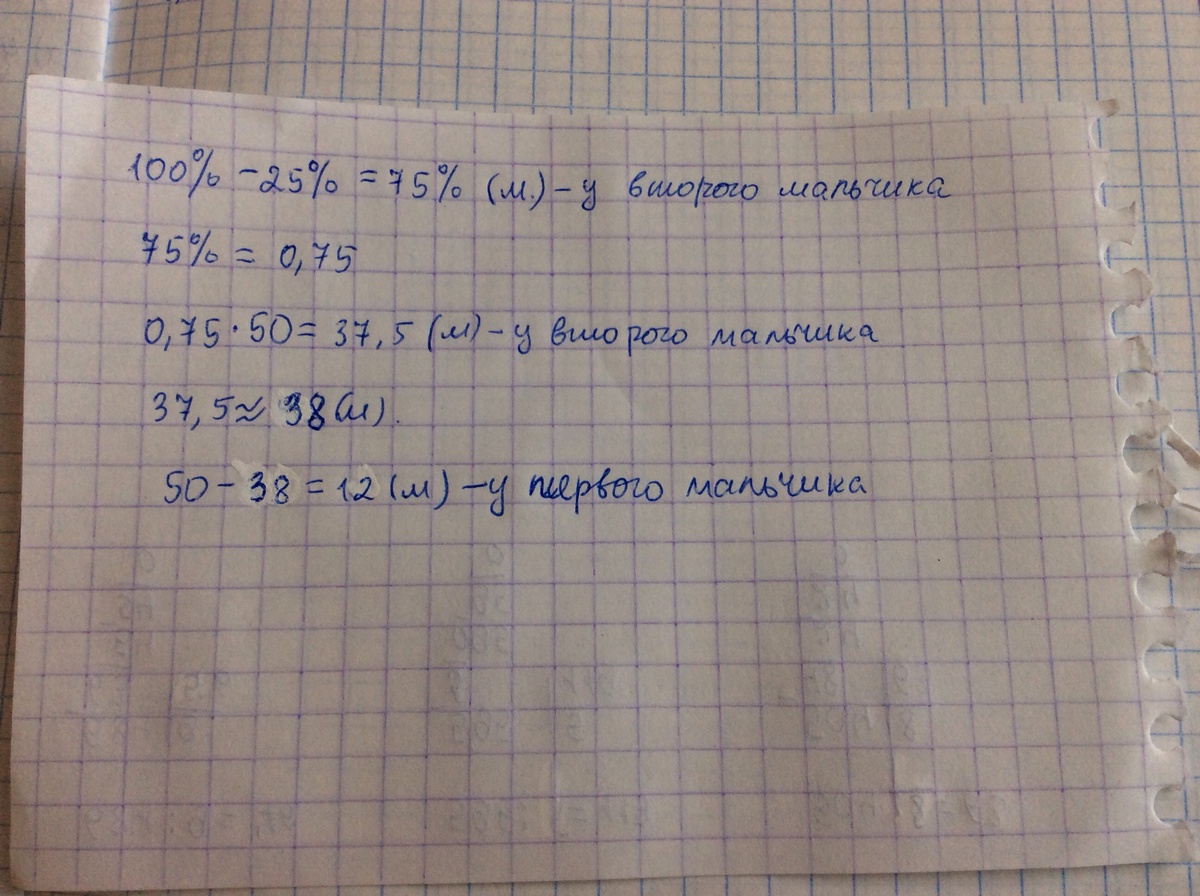 100% - 25% = 75% (м.) - у второго мальчика
75% = 0,75
0,75 · 50 = 37,5 (м) - у второго мальчика
37,5 ≈ 38 (м).
50 - 38 = 12 (м) - у первого мальчика